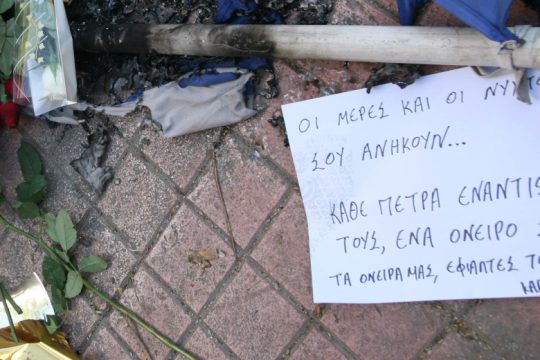 ΟΙ ΜΕΡΕΣ ΚΑΙ ΟΙ ΝΥΧΤΕ
ΣΟΥ ΑΝΗΚΟΥΝ...
ΚΑΘΕ ΠΕΤΡΑ ΕΝΑΝΤΙΟ
ΤΟΥΣ, ΕΝΑ ΟΝΕΙΡΟ
ΤΑ ΟΝΕΙΡΑ ΜΑΣ, ΕΦΙΑΛΤΕΣ ΤΟ